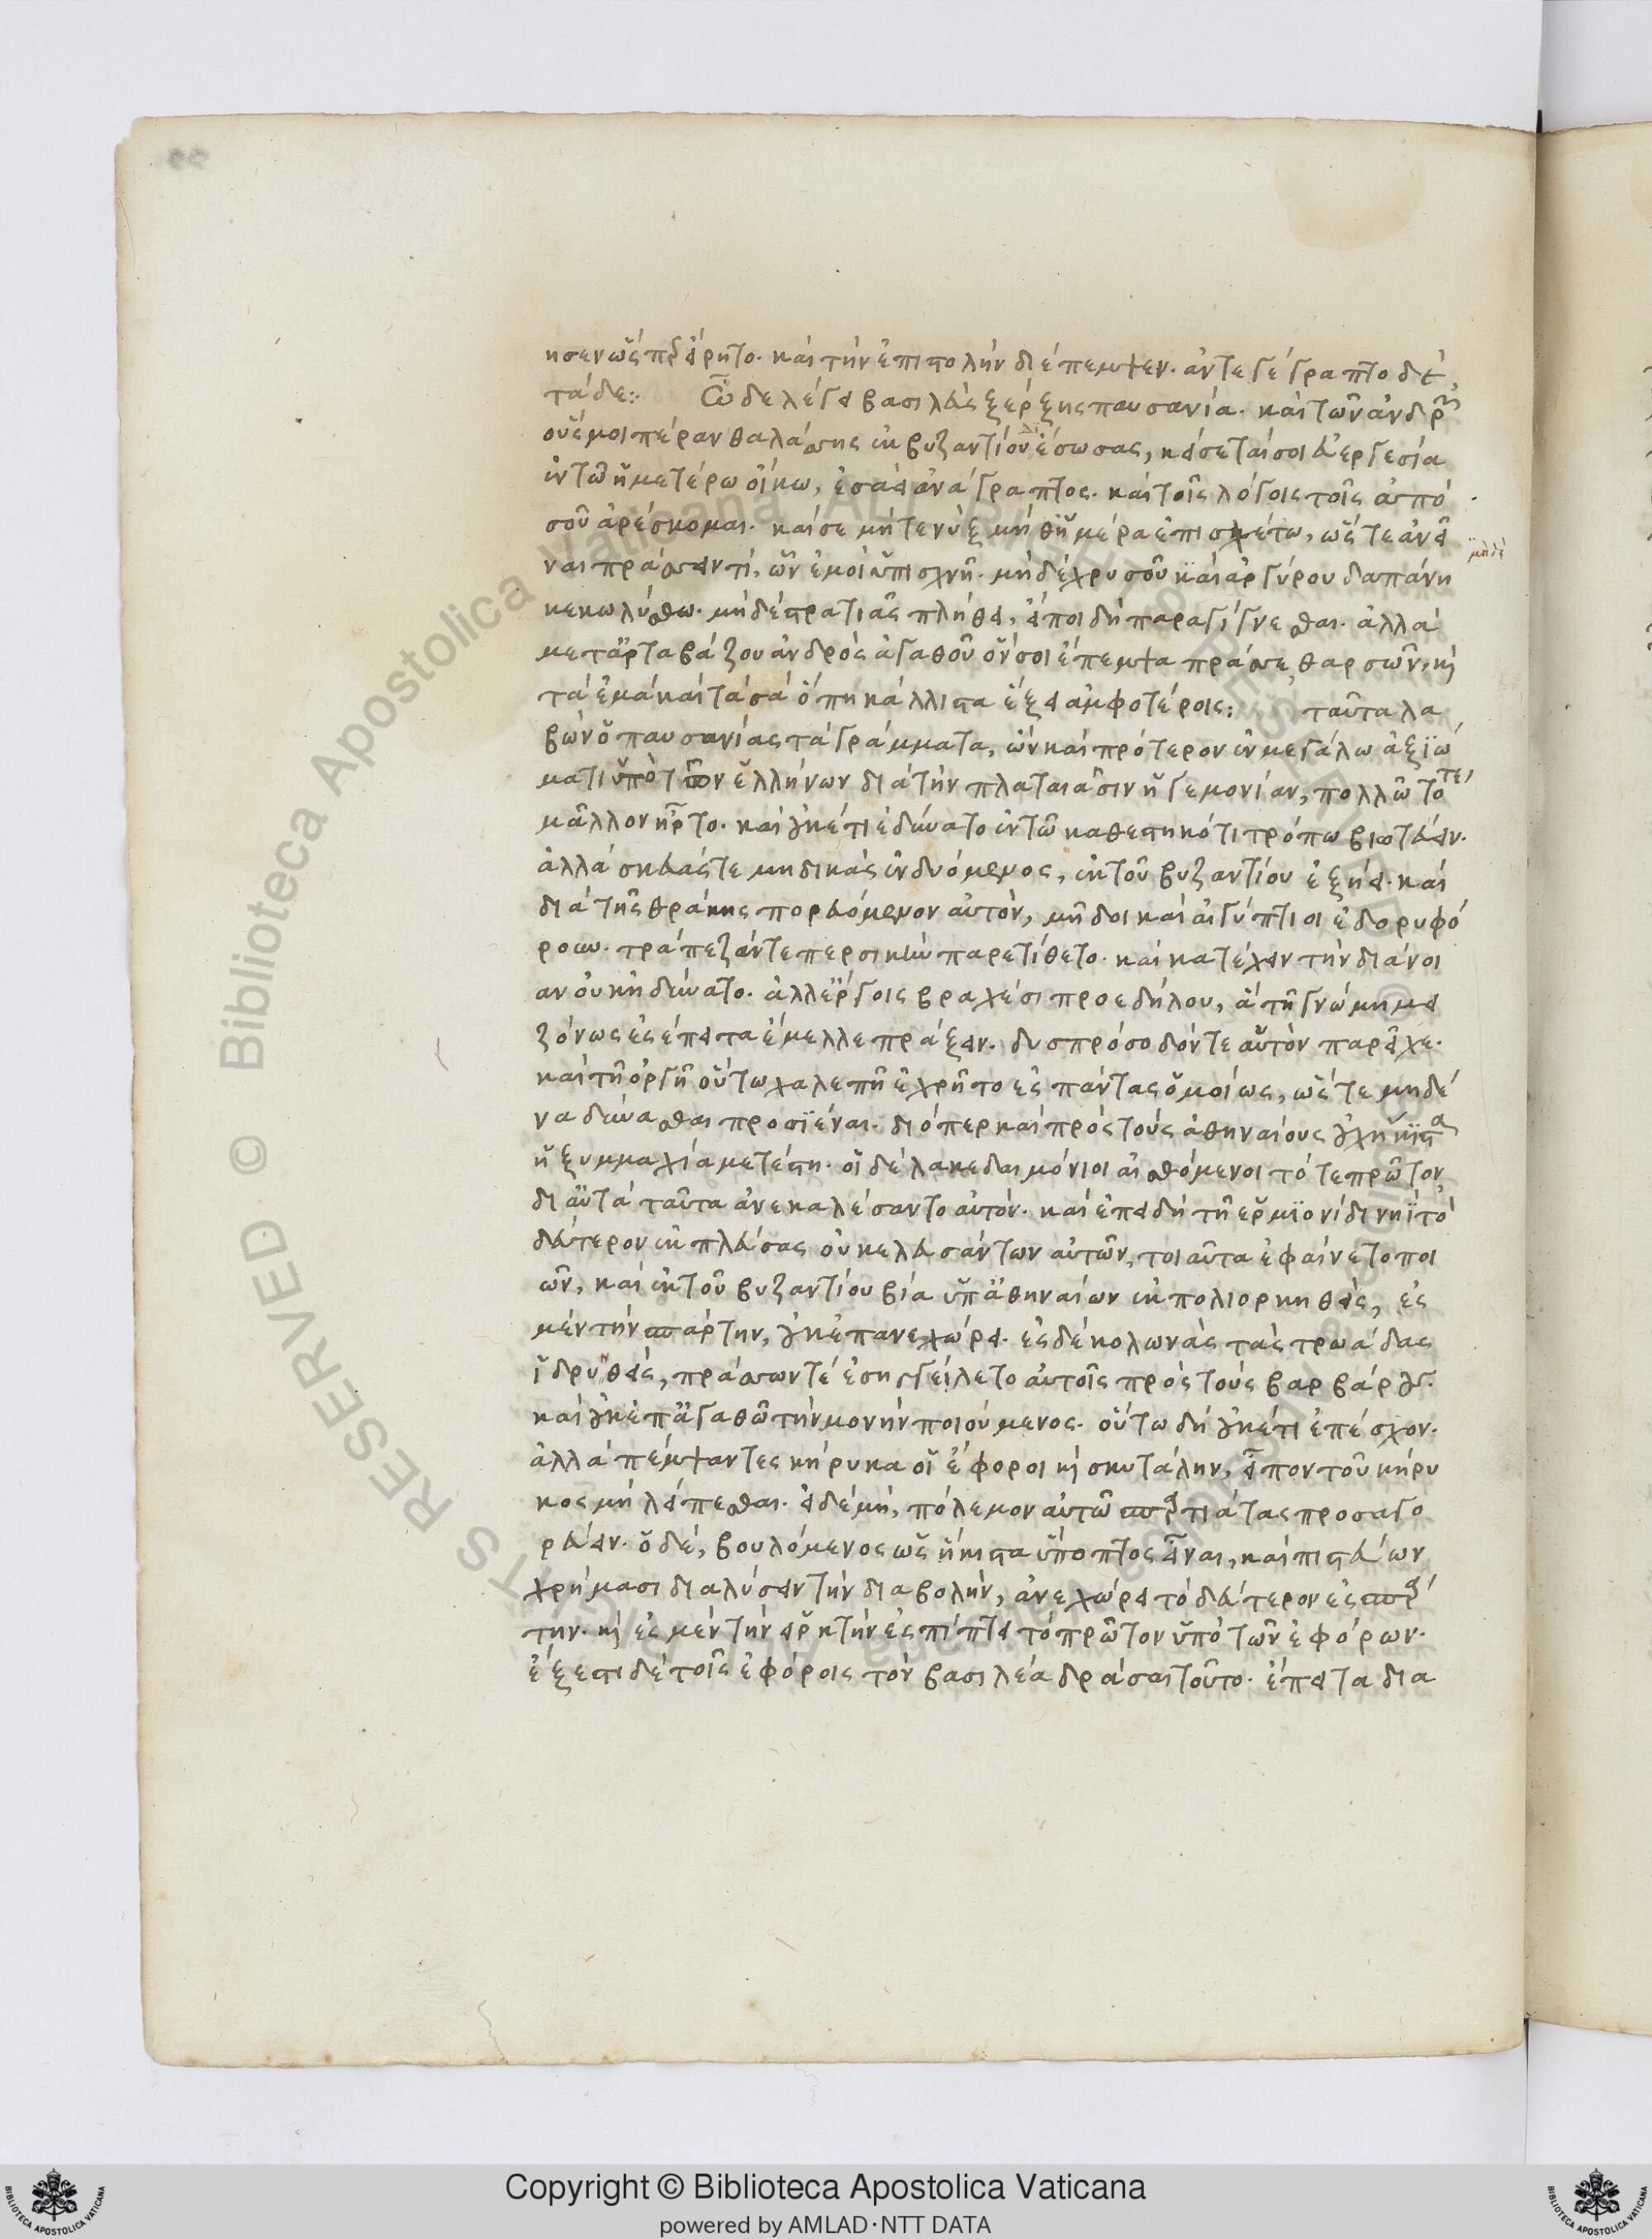 ησεν ὥσπερ εἴρητο. καὶ τὴν ἐπιστολὴν διέπεμψεν. ἀντεγέγραπτο δὲ
τάδε: Ὧδε λέγει βασιλεὺς ξέρξης παυσανία. καὶ τῶν ἀνδρῶν
οὕς μοι πέραν θαλάσσης ἐκ βυζαντίου ἔσωσας, κείσεταί σοι εὐεργεσία
ἐν τῶ ἡμετέρω οἴκω, ἐσαεὶ ἀνάγραπτος. καὶ τοῖς λόγοις τοῖς ἀπὸ
σοῦ ἀρέσκομαι. καί σε μήτε νὺξ μήθ' ἡμέρα ἐπισχέτω, ὥστε ἀνεῖ
μηδὲ
ναι πράσσειν τί, ὧν ἐμοὶ ὑπισχνῆ. μηδὲ χρυσοῦ καὶ ἀργύρου δαπάνη
κεκωλύσθω. μηδὲ στρατιᾶς πλήθει, εἴ ποι δὴ παραγίγνεσθαι. ἀλλὰ
μετ' ἀρταβάζου ἀνδρὸς ἀγαθοῦ ὅν σοι ἔπεμψα πράσσε θαρσῶν, καὶ
τὰ ἐμὰ καὶ τὰ σὰ ὅπη κάλλιστα ἕξει ἀμφοτέροις: ταῦτα λα
βὼν ὁ παυσανίας τὰ γράμματα, ὢν καὶ πρότερον ἐν μεγάλω ἀξιώ
ματι ὑπὸ τῶν ἑλλήνων διὰ τὴν πλαταιᾶσιν ἡγεμονίαν, πολλῶ τότε
μᾶλλον ἦρτο. καὶ οὐκέτι ἐδύνατο ἐν τῶ καθεστηκότι τρόπω βιοτεύειν.
ἀλλὰ σκευάς τε μηδικὰς ἐνδυόμενος, ἐκ τοῦ βυζαντίου ἐξήει. καὶ
διὰ τῆς θράκης πορευόμενον αὐτὸν, μῆδοι καὶ αἰγύπτιοι ἐδορυφό
ρουν. τράπεζάν τε περσικὴν παρετίθετο. καὶ κατέχειν τὴν διάνοι
αν οὐκ ἠδύνατο. ἀλλ' ἔργοις βραχέσι προεδήλου, ἃ τῆ γνώμη μει
ζόνως ἐς ἔπειτα ἔμελλε πράξειν. δυσπρόσοδόν τε αὑτὸν παρεῖχε.
καὶ τῆ ὀργῆ οὕτω χαλεπῆ ἐχρῆτο ἐς πάντας ὁμοίως, ὥστε μηδέ
να δύνασθαι προσϊέναι. διόπερ καὶ πρὸς τοὺς ἀθηναίους οὐχ ἥκιστα
ἡ ξυμμαχία μετέστη. οἱ δὲ λακεδαιμόνιοι αἰσθόμενοι τότε πρῶτον,
δι' αὐτὰ ταῦτα ἀνεκαλέσαντο αὐτόν. καὶ ἐπειδὴ τῆ ἑρμιονίδι νηῒ τὸ
δεύτερον ἐκπλεύσας οὐ κελευσάντων αὐτῶν, τοιαῦτα ἐφαίνετο ποι
ῶν, καὶ ἐκ τοῦ βυζαντίου βία ὑπ' ἀθηναίων ἐκπολιορκηθεὶς, ἐς
μὲν τὴν σπάρτην, οὐκ ἐπανεχώρει. ἐς δὲ κολωνὰς τὰς τρωάδας
ἱδρυνθεὶς, πράσσων τὲ ἐσηγγείλετο αὐτοῖς πρὸς τοὺς βαρβάρους.
καὶ οὐκ ἐπ' ἀγαθῶ τὴν μονὴν ποιούμενος. οὕτω δὴ οὐκέτι ἐπέσχον.
ἀλλὰ πέμψαντες κήρυκα οἱ ἔφοροι καὶ σκυτάλην, εἶπον τοῦ κήρυ
κος μὴ λείπεσθαι. εἰ δὲ μὴ, πόλεμον αὐτῶ σπαρτιάτας προσαγο
ρεύειν. ὁ δὲ, βουλόμενος ὡς ἥκιστα ὕποπτος εἶναι, καὶ πιστεύων
χρήμασι διαλύσειν τὴν διαβολὴν, ἀνεχώρει τὸ δεύτερον ἐς σπάρ
την. καὶ ἐς μὲν τὴν εἱρκτὴν ἐσπίπτει τὸ πρῶτον ὑπὸ τῶν ἐφόρων.
ἔξεστι δὲ τοῖς ἐφόροις τὸν βασιλέα δρᾶσαι τοῦτο. ἔπειτα δια
Copyright © Biblioteca Apostolica Vaticana
powered by AMLAD·NTT DATA